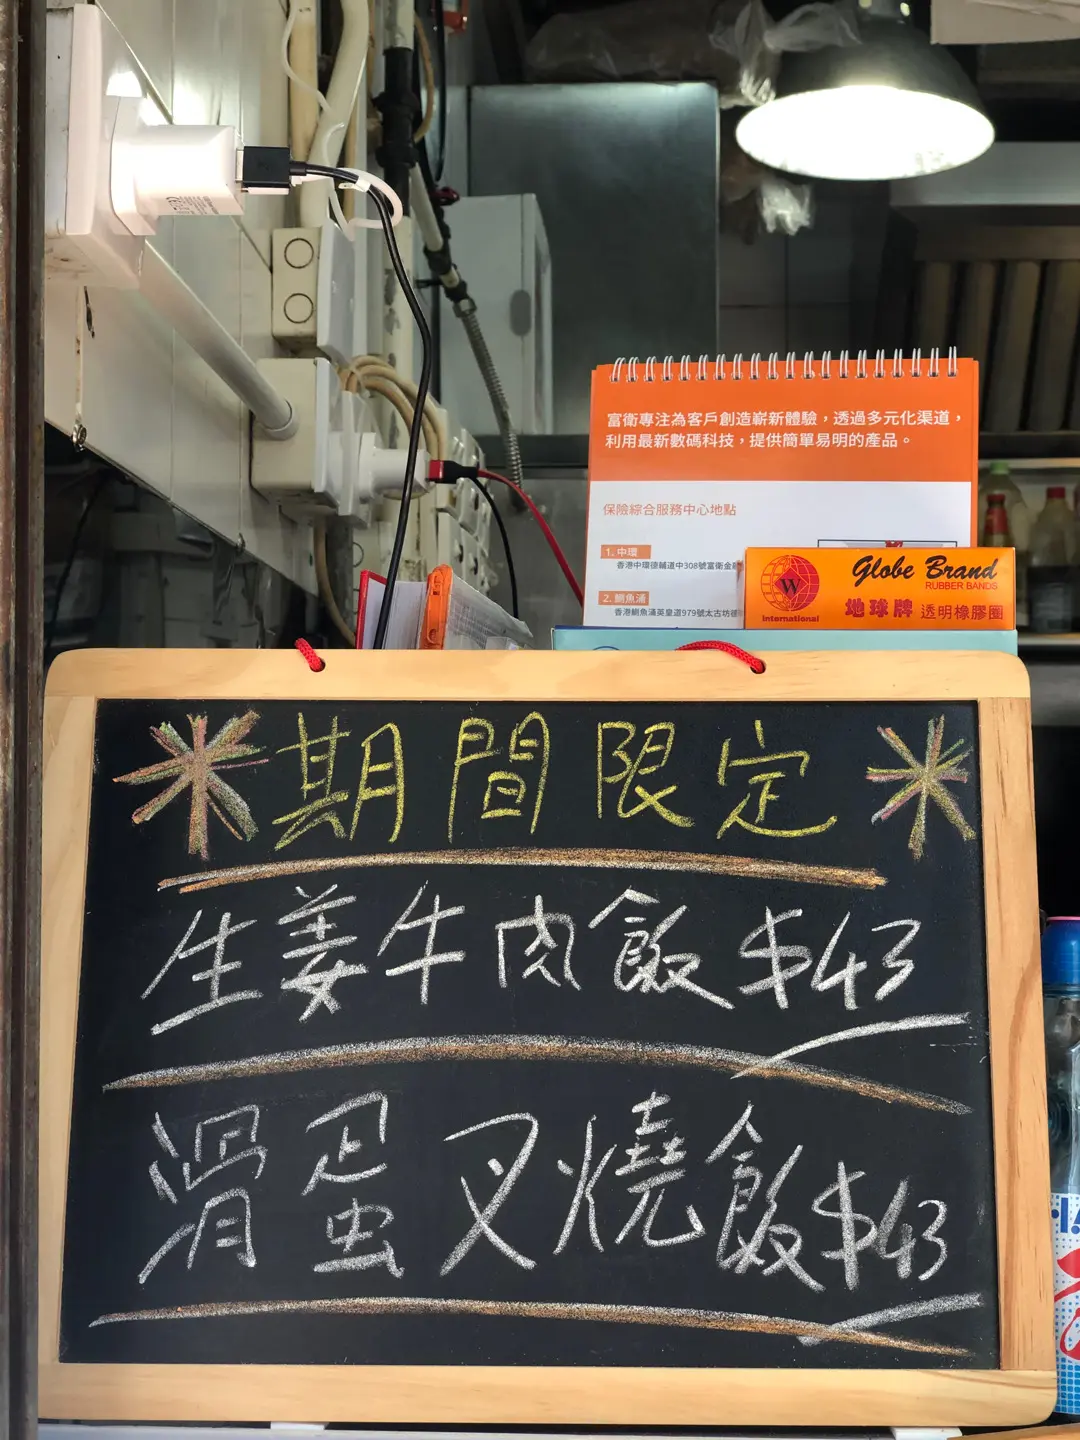 富衛專注為客戶創造嶄新體驗，透過多元化渠道，
利用最新數碼科技，提供簡單易明的產品。
保險綜合服務中心地點
1. 中環
香港中環德輔道中308號富衛金融
2. 鰂魚涌
香港鰂魚涌英皇道979號太古坊德
W
International
Globe Brand
RUBBER BANDS
地球牌 透明橡膠圈
期間限定
生姜牛肉飯$43
滑蛋叉燒飯$43